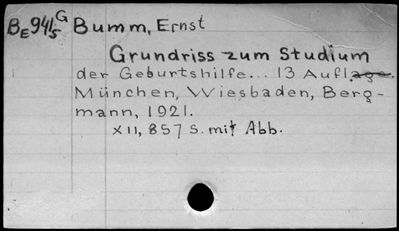 BE94/5 G Bumm, Ernst
Grundriss zum Studium
der Geburtshilfe... 13 Auflage.
München, Wiesbaden, Berg-
mann, 1921.
XII, 857 S. mit Abb.